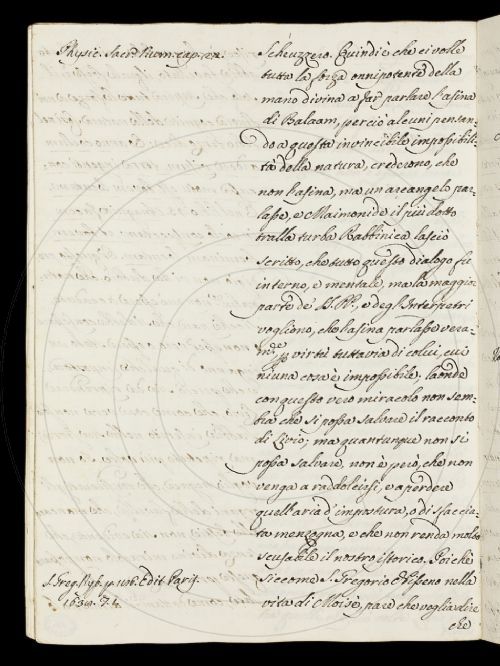 Physic. Sacr. Num. cap. 22.
Scheuzzero. Quindi è che ei volle
tutta la forza onnipotente della
mano divina a far parlare l'asina
di Balaam, perciò alcuni pensan-
do a questa invincibile impossibili-
tà della natura, crederono, che
non l'asina, ma un arcangelo par-
lasse, e Maimonide il più dotto
tralla turba Rabbinica lasciò
scritto, che tutto questo dialogo fu
interno, e mentale, ma la maggior
parte de' SS. PP., e degl'Interpetri
vogliono, che l'asina parlasse vera-
m.te p virtù tuttavia di colui, cui
niuna cosa è impossibile, laonde
con questo vero miracolo non sem-
bra che si possa salvare il racconto
di Livio; ma quantunque non si
possa salvare, non è però, che non
venga a raddolcirsi, e a perdere
quell'aria d'impostura, o di sfaccia-
ta menzogna, e che non renda molto
scusabile il nostro istorico. Poichè
siccome S. Gregorio Nisseno nella
vita di Moisè, pare che voglia dire
che
S. Greg. Nyss. p. Edit. Paris.